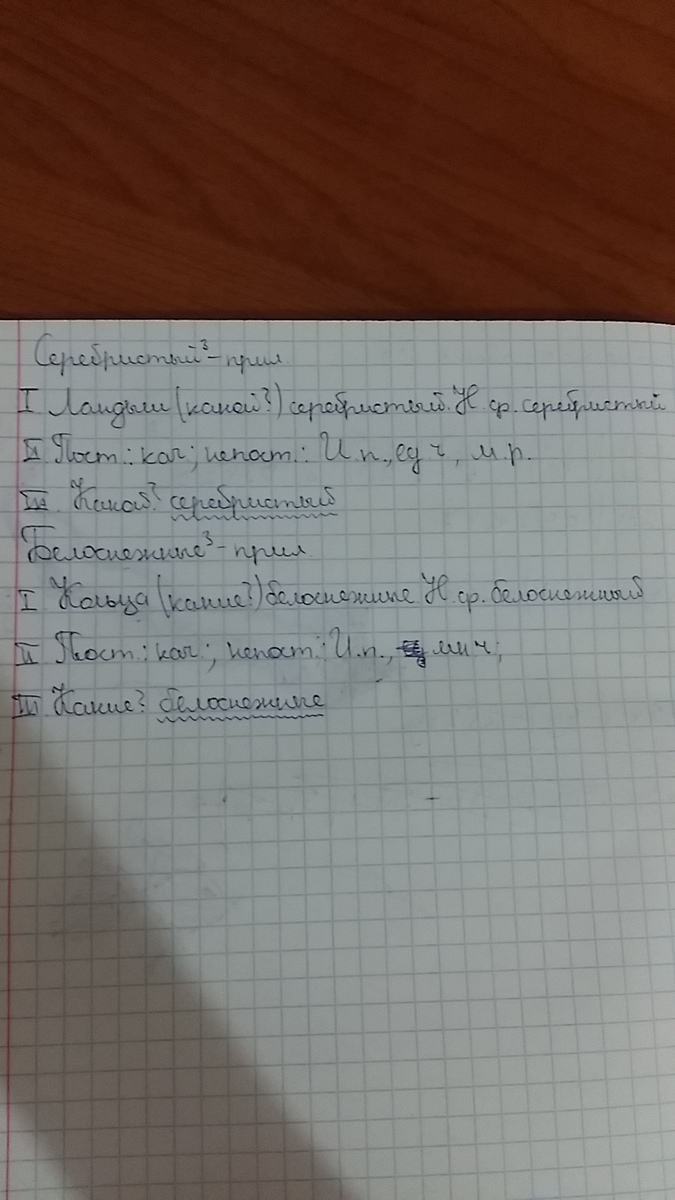 Серебристый³-прил
I Ландыш (какой?) серебристый. Н. ф. серебристый
II Пост.: кач; непост.: И.п., ед ч, м.р.
III Какой? серебристый
Белоснежные³-прил
I Кольца (какие?) белоснежные Н. ф. белоснежный
II Пост.: кач; непост.: И.п., мн ч;
III Какие? белоснежные